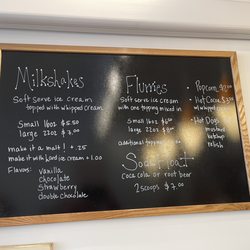 Milkshakes
Soft serve ice cream
topped with whipped cream
Small 16oz $5.50
large 22oz $7.00
make it a malt! + .25
make it with hard ice cream + 1.00
Flavors: vanilla
chocolate
Strawberry
double chocolate
Flurries
Soft serve ice cream
with one topping mixed in
Small 16oz
large 22oz
additional topping
Soda Float
coca cola or root beer
2 scoops $7.00
• Popcorn
• Hot Cocoa
w/ whipped
• Hot Dogs
mustard
ketchup
relish